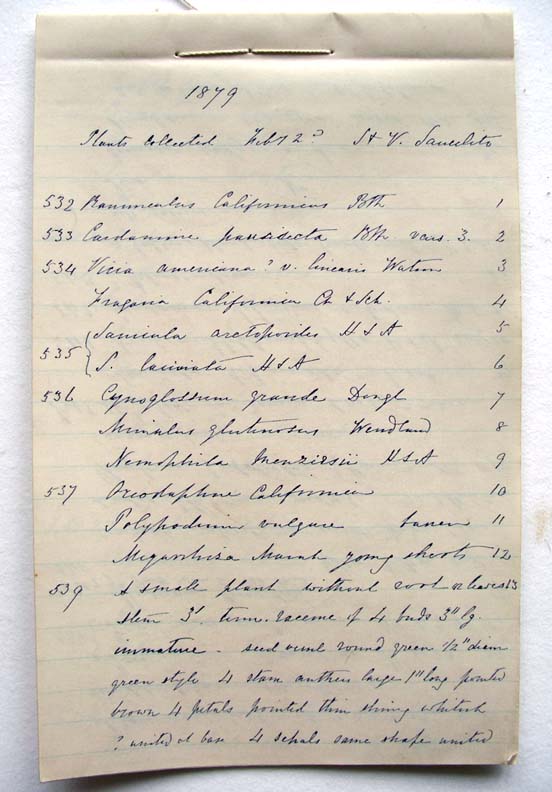 1879
Plants collected Feby 2? St V. Saucelito
532 Ranunculus Californicus Bth 1
533 Cardamine paucisecta Bth vars. 3. 2
534 Vicia americana? v. linearis Watson 3
Fragaria Californica Ch & Sch. 4
Sanicula arctopoides H & A 5
535 S. laciniata H & A 6
536 Cynoglossum grande Dougl 7
Mimulus glutinosus Wendland 8
Nemophila Menziesii H & A 9
537 Oreodaphne Californica 10
Polypodium vulgare 11
Megarrhiza Marah young shoots 12
539 A small plant without root or leaves 13
stem 3'. term. raceme of 4 buds 3" lg.
immature - seed round green 1/2" diam
green style 4 stam anthers large 1" long pointed
brown 4 petals pointed thin shining whitish
? united at base 4 sepals same shape united